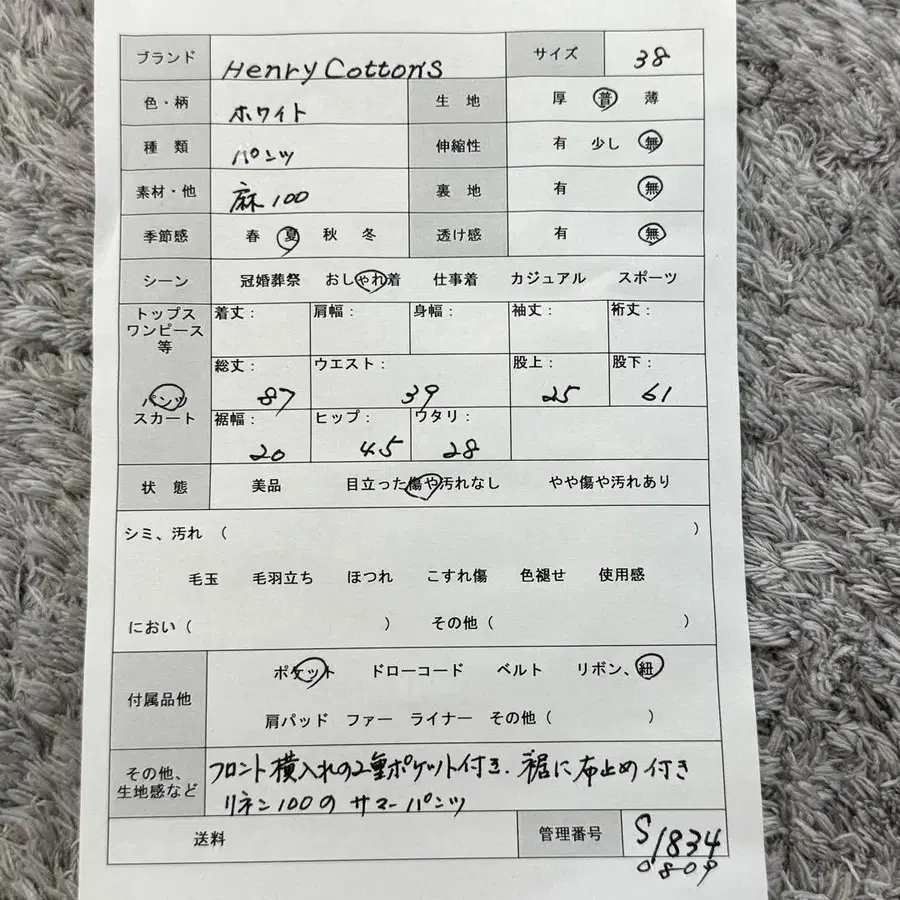 ブランド Henry Cotton's サイズ 38
色・柄 ホワイト 生地 厚 普 薄
種類 パンツ 伸縮性 有 少し 無
素材・他 麻100 裏地 有 無
季節感 春 夏 秋 冬 透け感 有 無
シーン 冠婚葬祭 おしゃれ着 仕事着 カジュアル スポーツ
トップス ワンピース等 着丈： 肩幅： 身幅： 袖丈： 裄丈：
パンツ スカート 総丈： 87 ウエスト： 39 股上： 25 股下： 61
裾幅： 20 ヒップ： 45 ワタリ： 28
状態 美品 目立った傷や汚れなし やや傷や汚れあり
シミ、汚れ （ ）
毛玉 毛羽立ち ほつれ こすれ傷 色褪せ 使用感
におい（ ） その他（ ）
付属品他 ポケット ドローコード ベルト リボン、紐
肩パッド ファー ライナー その他（ ）
その他、生地感など フロント横入れの2重ポケット付き. 裾に布止め付き
リネン100のサマーパンツ
送料 管理番号 S1834
0809